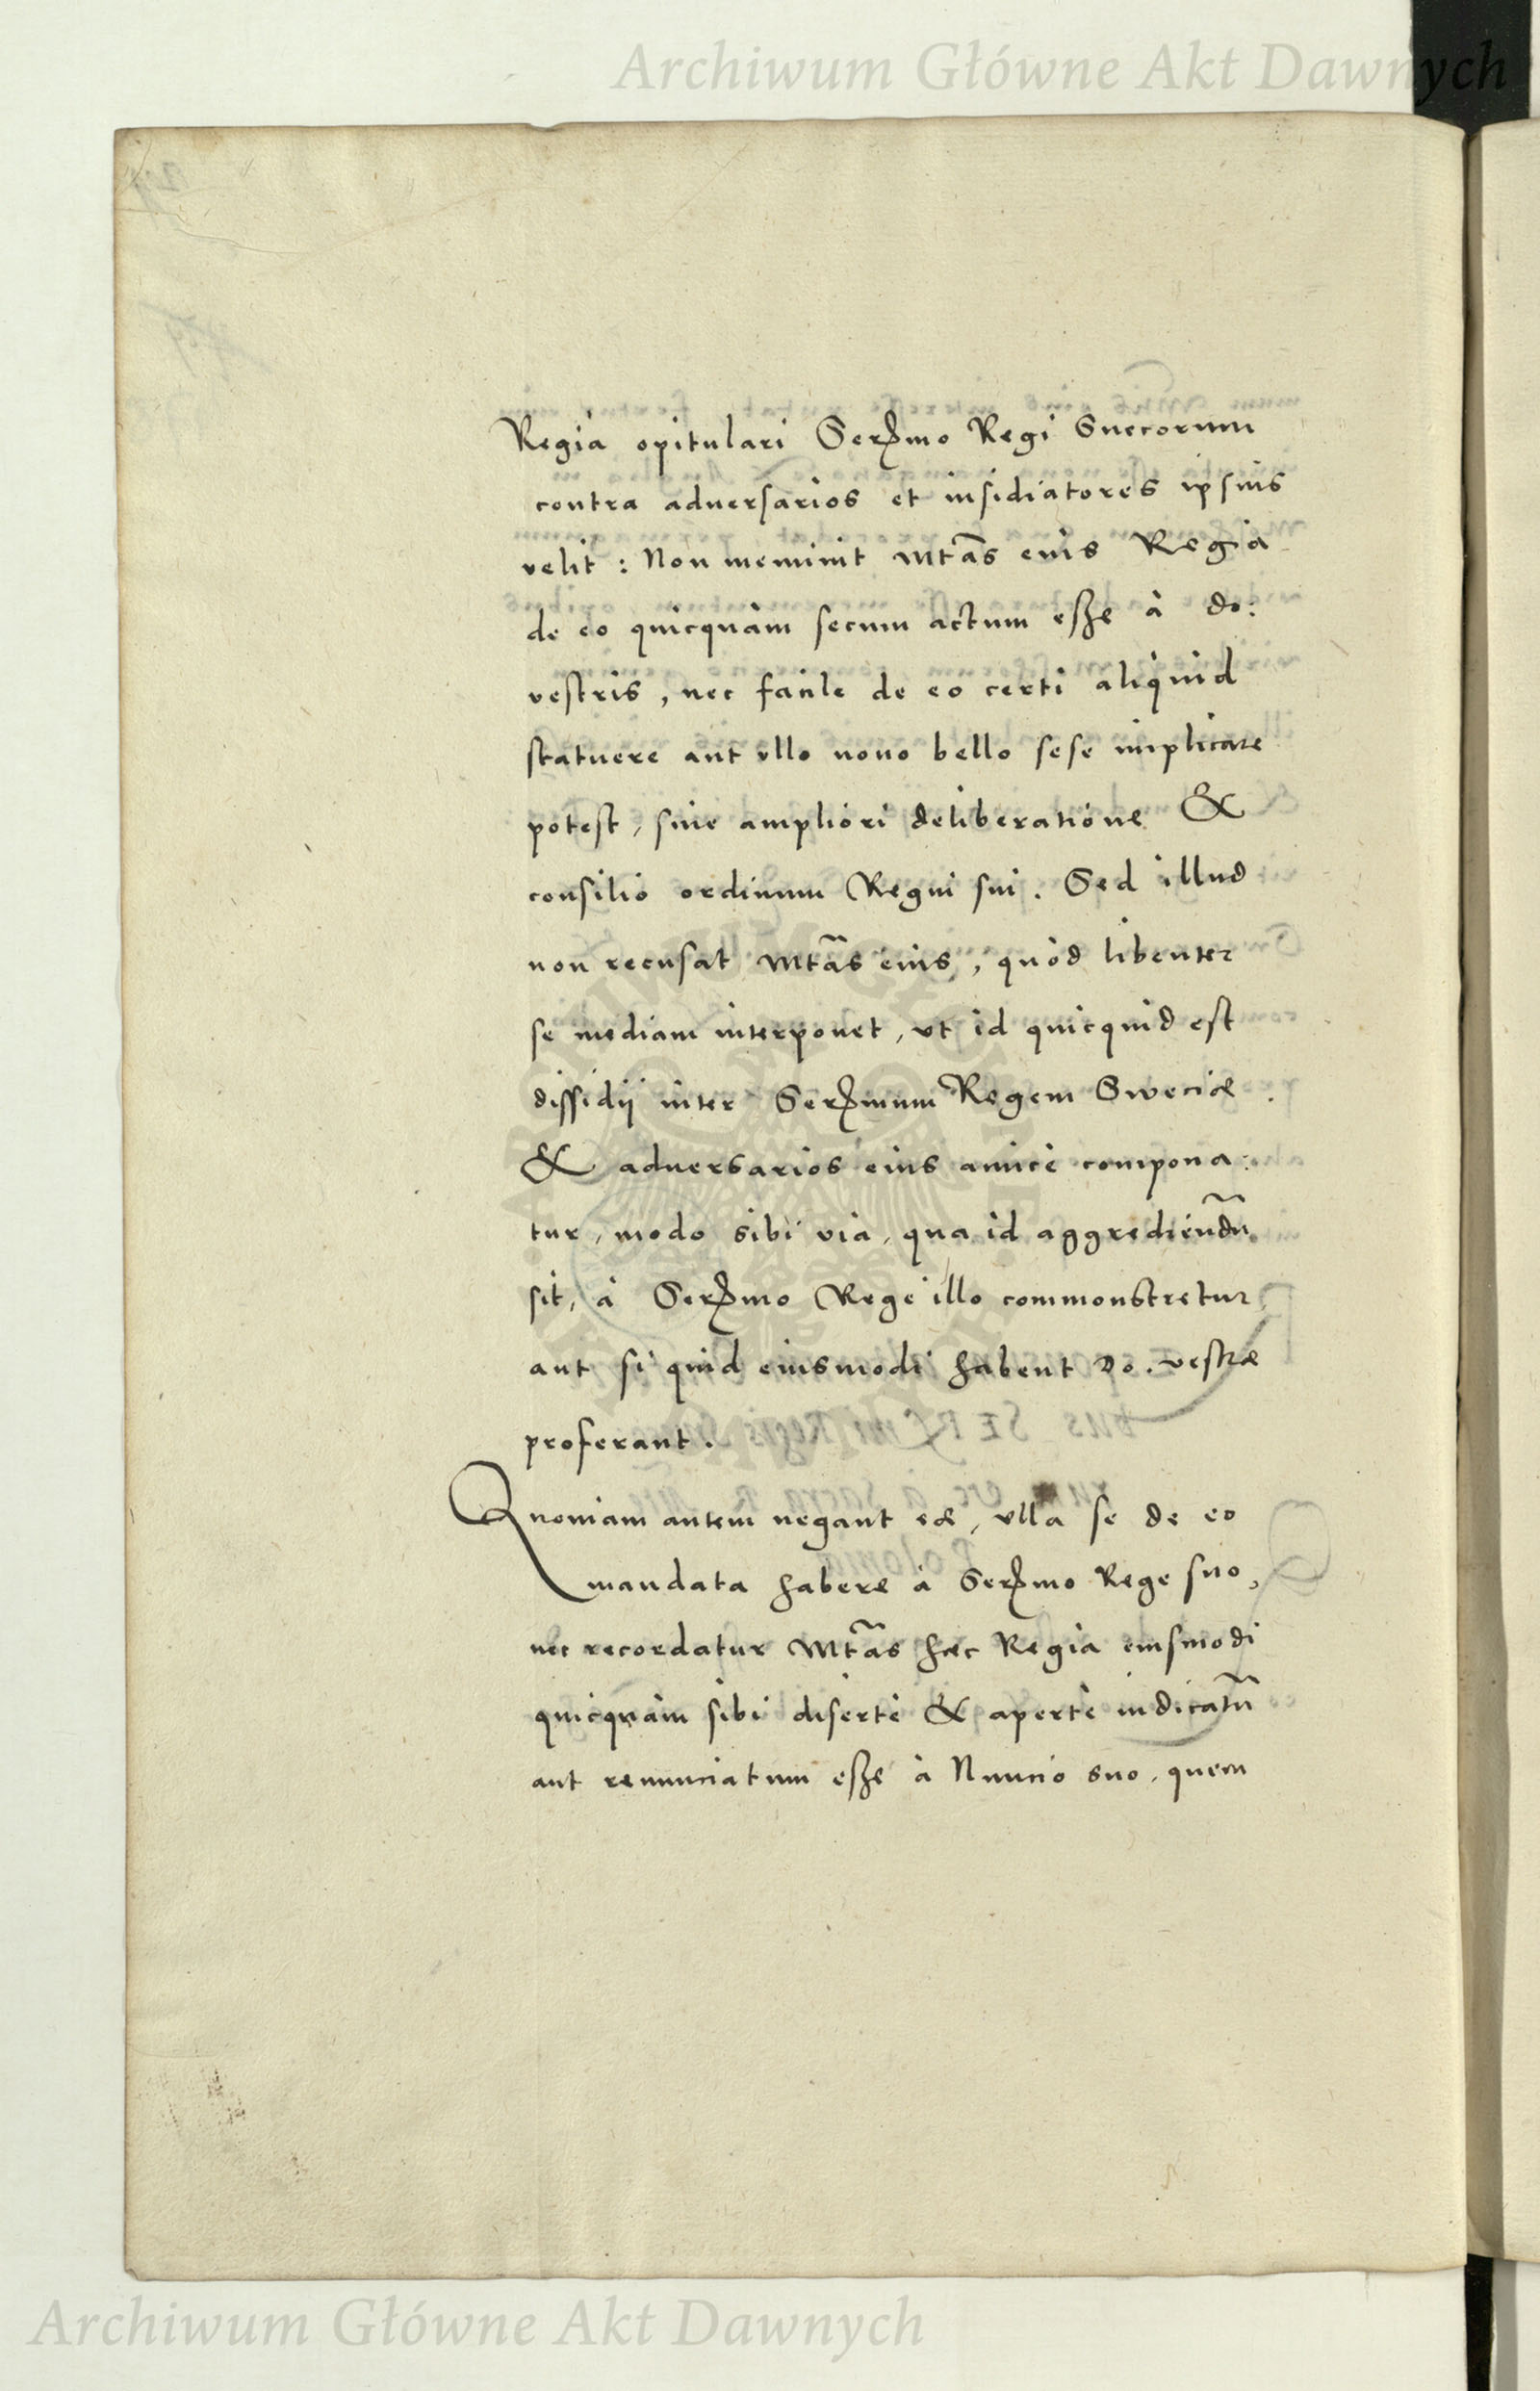 Archiwum Główne Akt Dawnych
Regia opitulari Serꝫmo Regi Suecorum
contra aduersarios et insidiatores ipsius
velit : Non meminit Mtãs eius Regia
de eo quicquàm secum actum esse à do:
vestris, nec facile de eo certi aliquid
statuere aut vllo nouo bello sese implicare
potest, sine ampliori deliberatione &
consilio ordinum Regni sui. Sed illud
non recusat Mtãs eius, quòd libenter
se mediam interponet, vt id quicquid est
dissidij inter Serꝫmum Regem Sweciæ
& aduersarios eius amicè compona:
tur, modo sibi via, qua id aggrediendũ
sit, à Serꝫmo Rege illo commonstretur
aut si quid eiusmodi habent Do. vestræ
proferant.
Quoniam autem negant eæ, vlla se de eo
mandata habere à Serꝫmo Rege suo,
nec recordatur Mtãs hæc Regia eiusmodi
quicquàm sibi disertè & apertè indicatũ
aut renunciatum esse à Nuncio suo, quem
Archiwum Główne Akt Dawnych